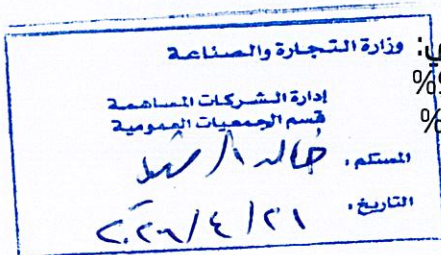 وزارة التجارة والصناعة
إدارة الشركات المساهمة
قسم الجمعيات العمومية
المستلم: خالد
التاريخ: ٢٠٢٦/٤/٢١
%
%